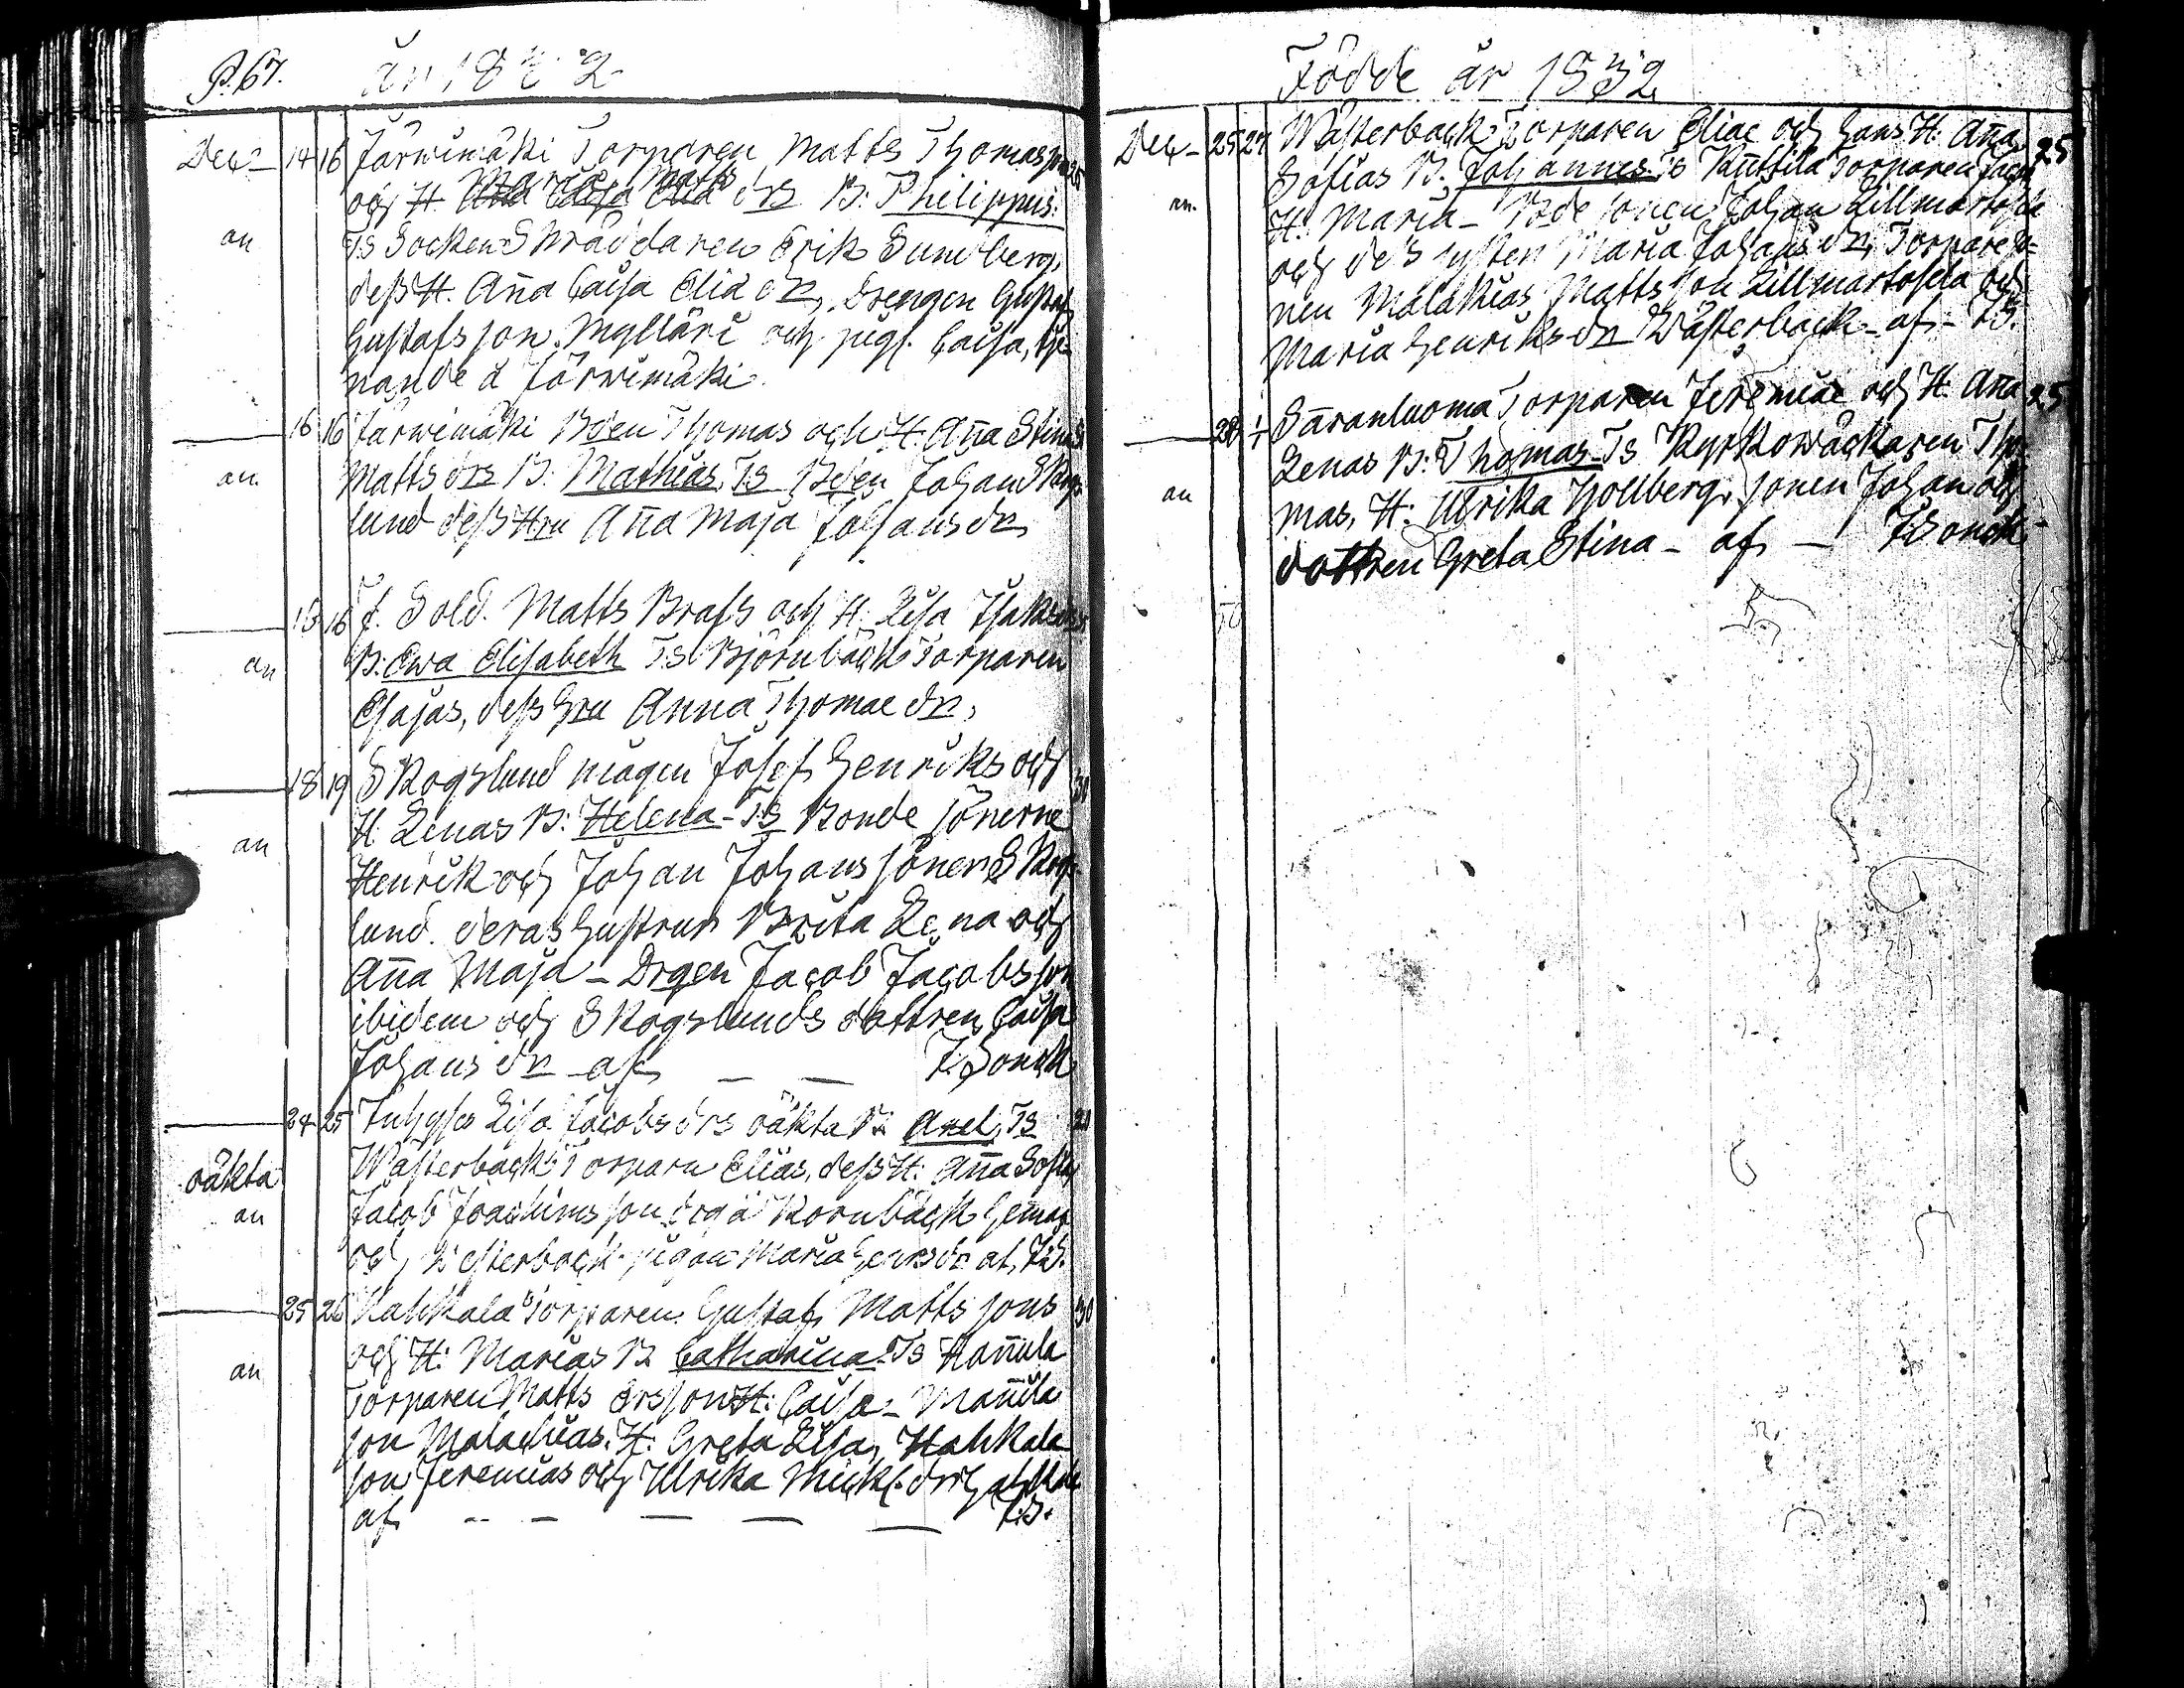 P. 67. år 1832
Dec - 14 16 Järwimäki Torparen Matts Thomasson 36
och H. Marias Matts drs B: Philippus.
an Ts Socken Skräddaren Erik Sundberg,
dess H. Anna Caisa Elid dr, Drengen Gustaf
Gustafsson Mylläri och pig. Caisa, tje-
nande å Järwimäki.
16 16 Järwimäki Bden Thomas och H. Anna Stinas
an. Matts drs B: Mathias, Ts Bden Johan Skogs
lund dess Hru Anna Maja Johans dr,
15 16 f. Sold. Matts Brass och H. Lisa Isaks drs
an B: Ewa Elisabeth Ts Björnbäck Torparen
Esajas, dess Hru Anna Thomae dr,
18 19 Skogslund mågen Josef Henriks och 31
H. Lenas B: Helena - Ts Bonde sönerne
an Henrik och Johan Johans söner Skogs
lund. deras Hustrur Brita Lena och
Anna Maja - Drgen Jacob Jacobsson
ibidem och Skogslunds dottren Caisa
Johans dr af — — I. Sonck
24 25 Inhyses Lisa Jacobs drs oäkta B: Axel, Ts 21
Wästerback Torparn Elias, dess H: Anna Sofia
oäkta
an Jacob Joachimsson drg å Kornbäck hemman
och Westerback pigan Maria Henrs dr af, I.S.
25 26 Hahkala Torparen Gustaf Mattssons 30
och H: Marias B. Catharina. Ts Hannula
an Torparen Matts Ersson H: Caisa - Mannila
son Malachias. H: Greta Lisa, Hahkala
son Jeremias och Ulrika Mickl. dr
af — — — — — I.S.
Födde år 1832
Dec - 25 27 Wästerback Torparen Eliae och hans H: Anna 25
Sofias B. Johannes. Ts Ruttila Torparen Jacob
an. H: Maria - Bde sonen Johan Lillmartosela
och des systen Maria Johans dr, Torpare so-
nen Malakias Mattsson Lillmartosela och
Maria Henriks dr Wästerback - af - I.S.
28 1/1 Säranluoma Torparen Jeremiae och H. Anna 25
Lenas B: Thomas Ts Kyrkowäckaren Tho-
an mas, H: Ulrika Hollberg, sonen Johan och
dottren Greta Stina - af — I Sonck